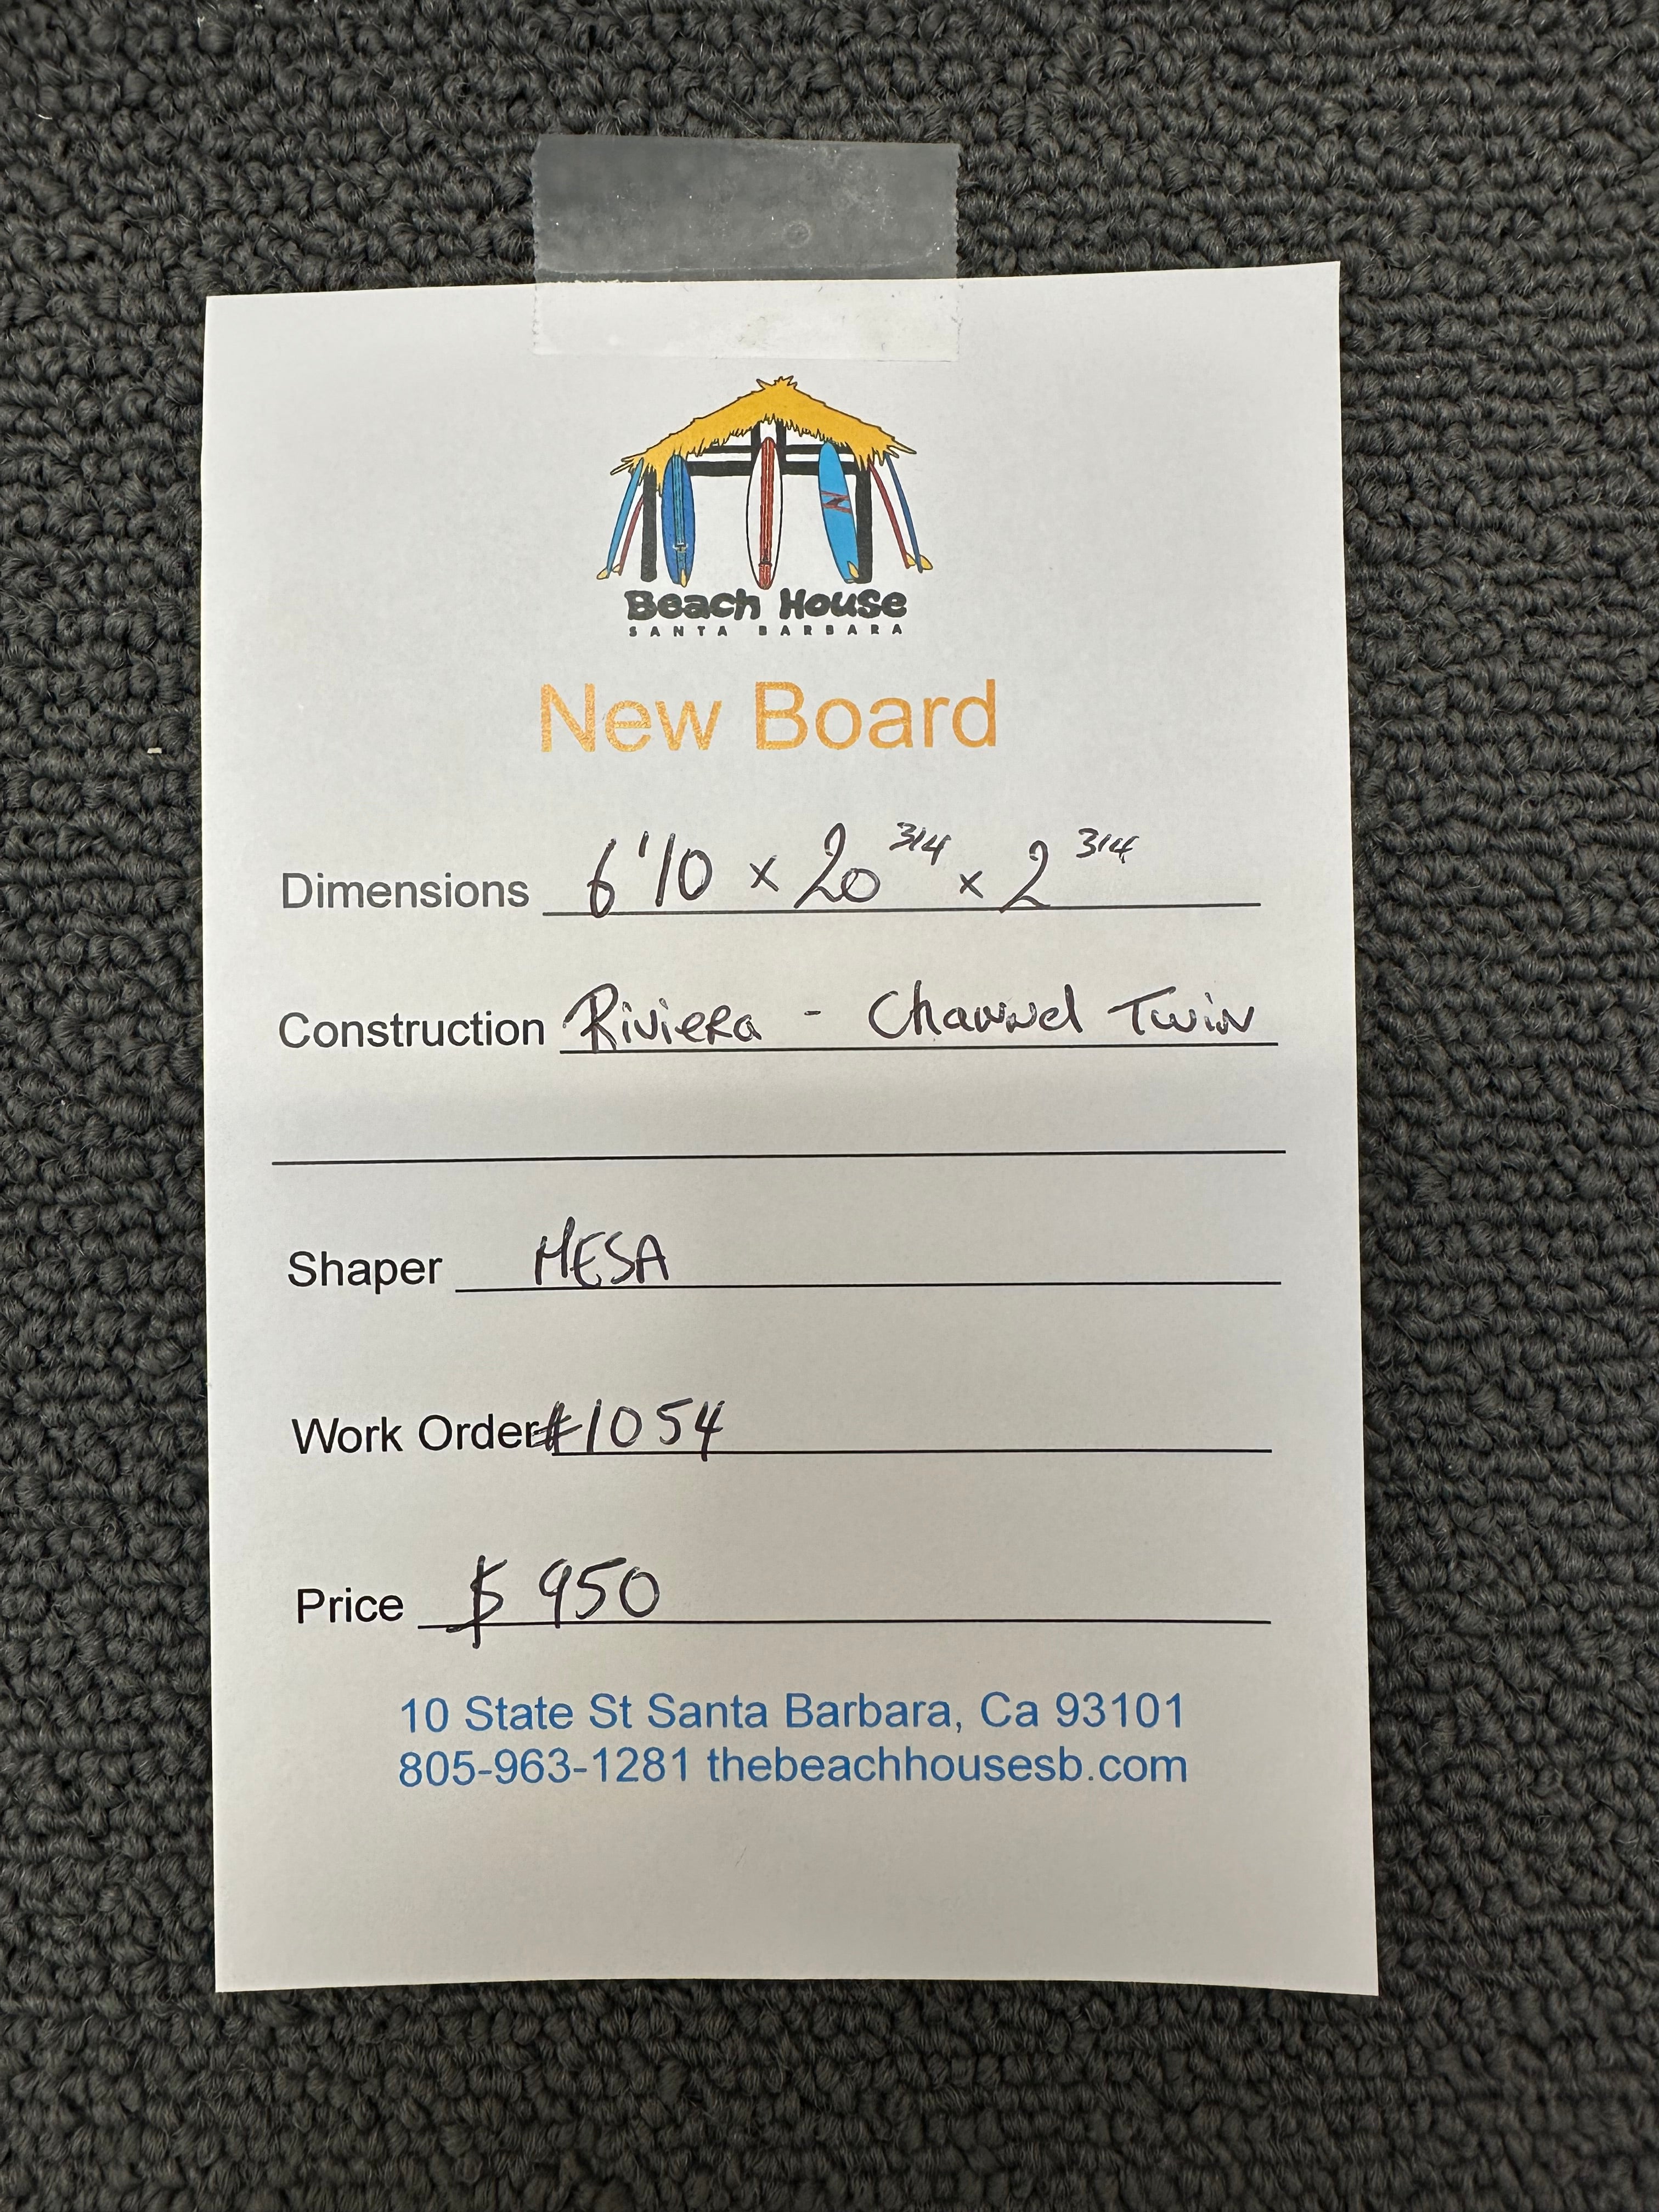 Beach House
SANTA BARBARA
New Board
Dimensions 6'10 x 20 3/4 x 2 3/4
Construction Riviera - Channel Twin
Shaper MESA
Work Order #1054
Price $ 950
10 State St Santa Barbara, Ca 93101
805-963-1281 thebeachhousesb.com